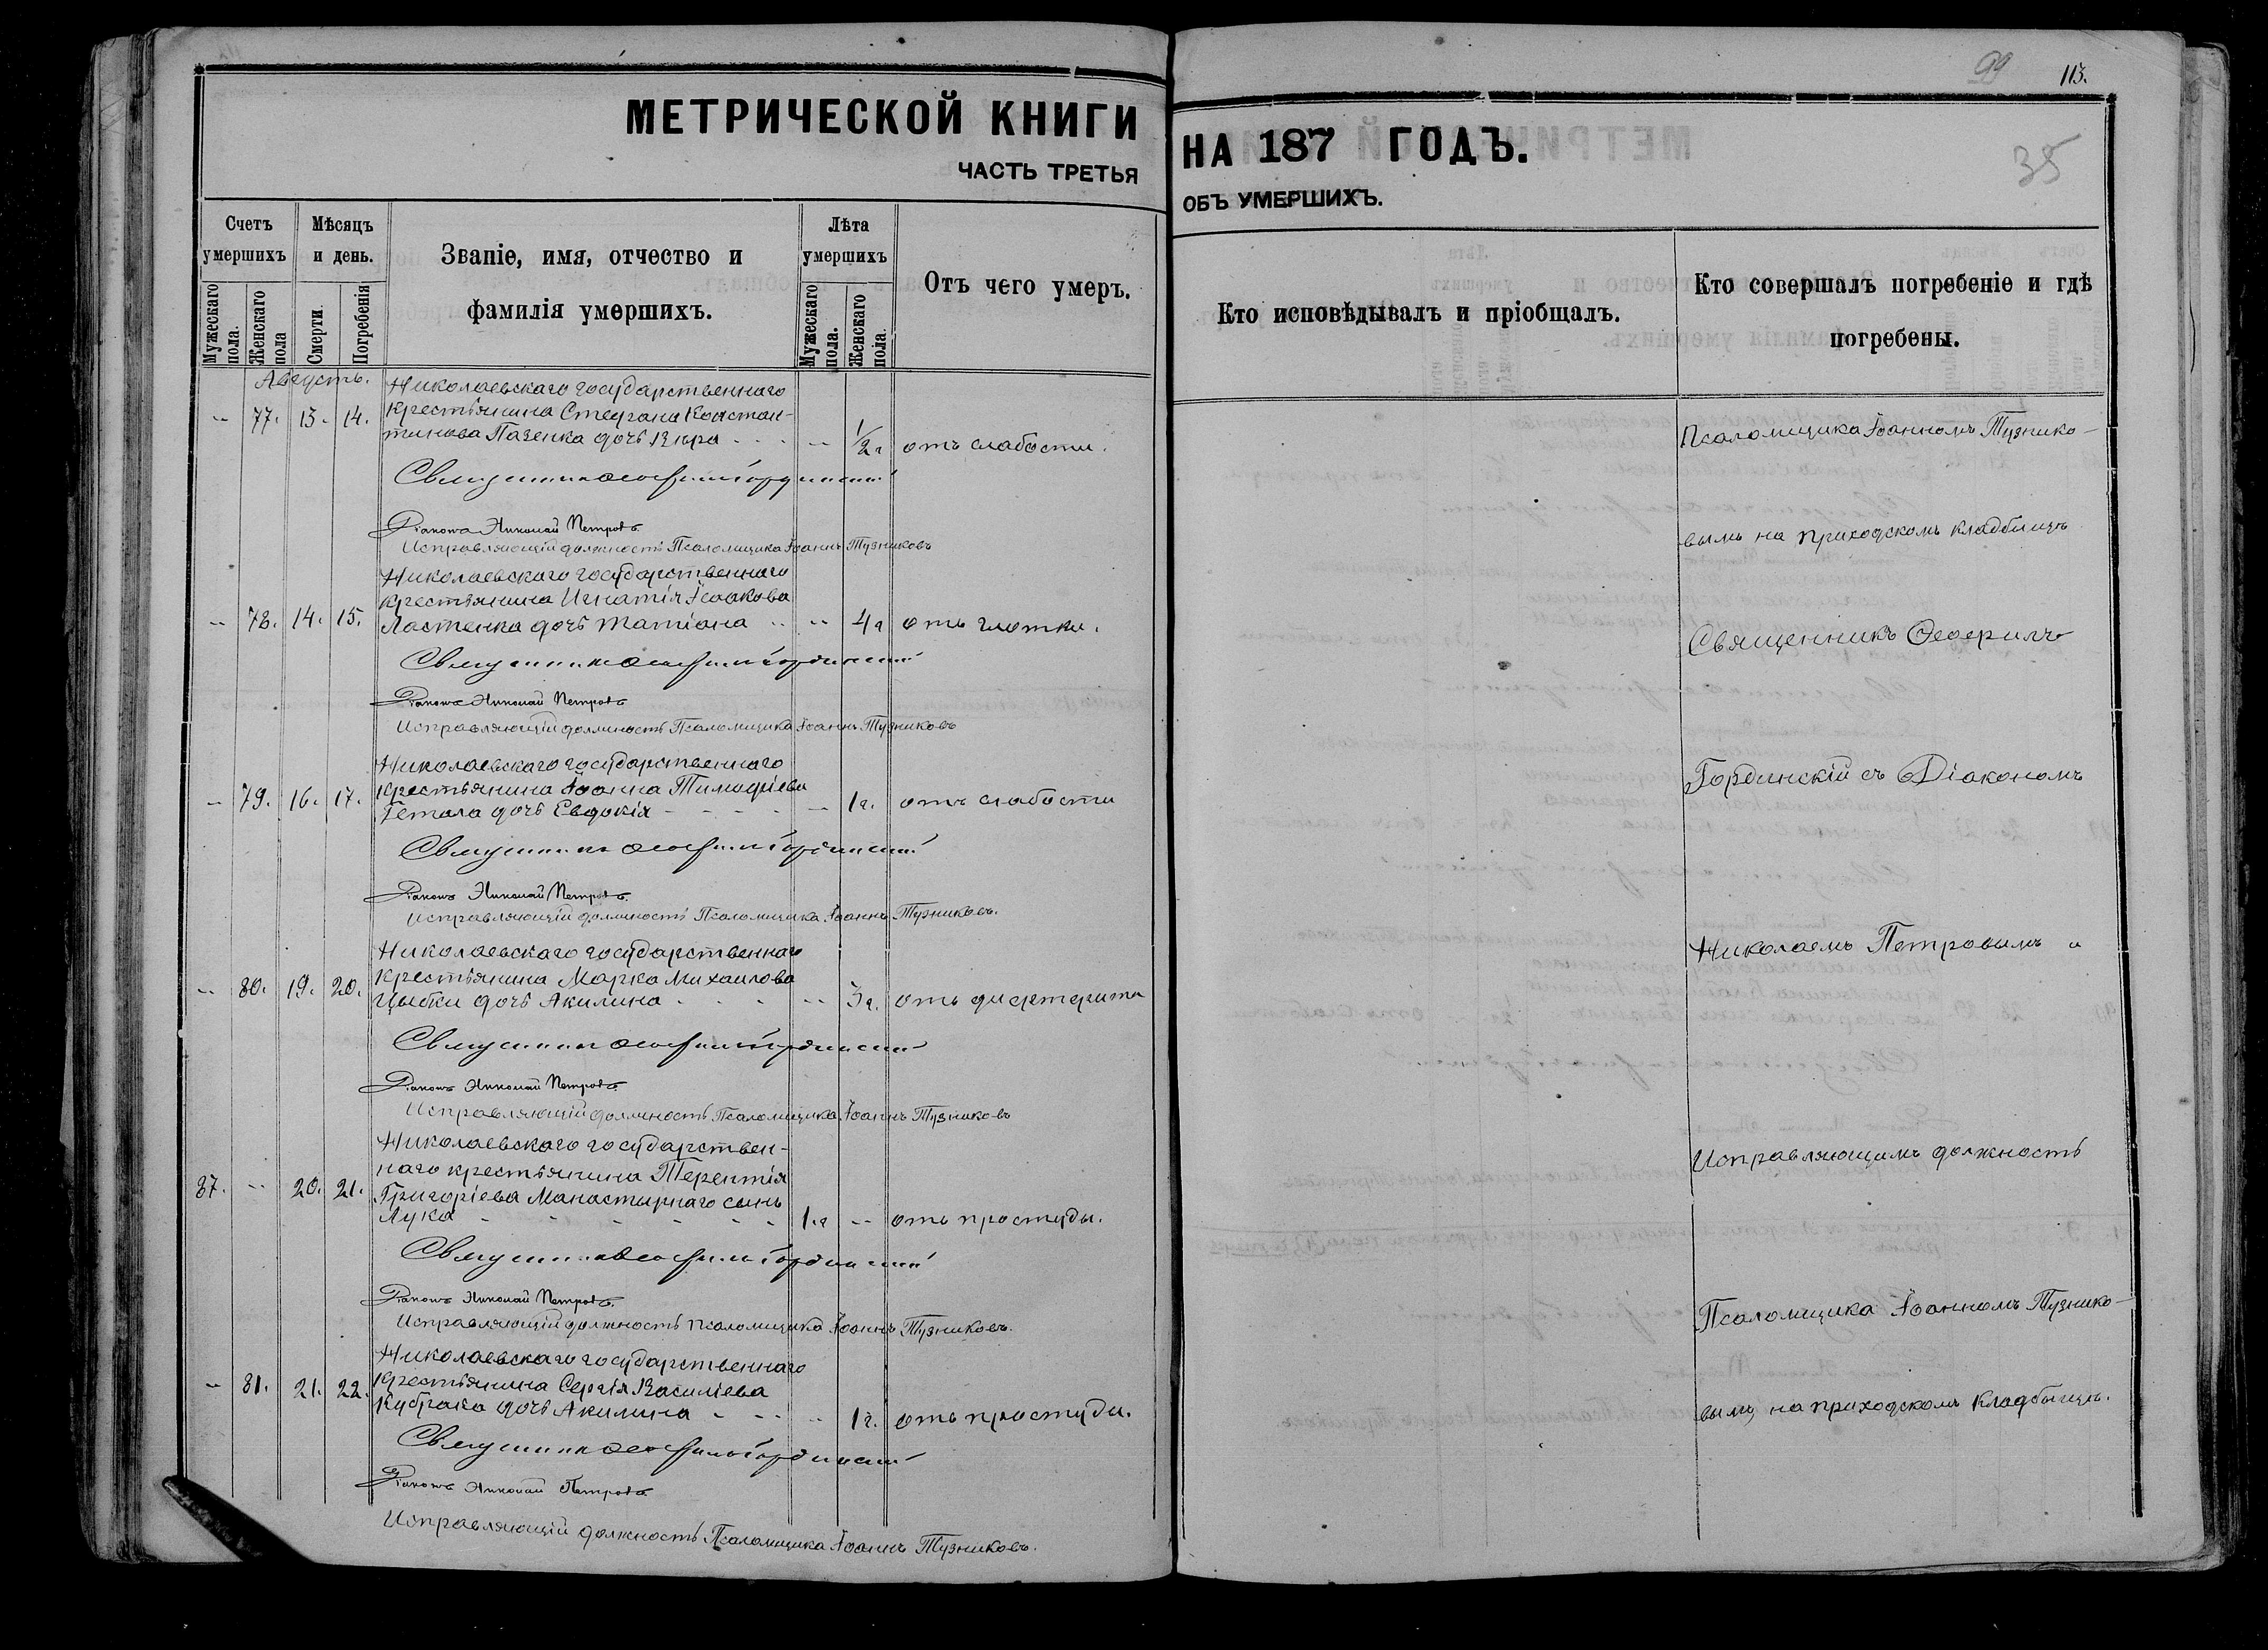 МЕТРИЧЕСКОЙ КНИГИ
ЧАСТЬ ТРЕТЬЯ
Счетъ умершихъ
Мужескаго пола.
Женскаго пола
Мѣсяцъ и день.
Смерти.
Погребенія
Званіе, имя, отчество и
фамилія умершихъ.
Лѣта умершихъ
Мужескаго пола.
Женскаго пола
Отъ чего умеръ.
Августъ.
Николаевскаго государственнаго
-- 77. 13. 14. крестьянина Стефана Констан-
тинова Пазенка дочь Вѣра - - - -- 1/2 г отъ слабости.
Священникъ Ѳеофилъ Гординскій
Діаконъ Николай Петровъ.
Исправляющій должность Псаломщика Іоаннъ Тузниковъ
Николаевскаго государственнаго
крестьянина Игнатія Исаакова
-- 78. 14. 15. Ластенка дочь Татіана -- -- 4 г отъ глотки.
Священникъ Ѳеофилъ Гординскій
Діаконъ Николай Петровъ
Исправляющій должность Псаломщика Іоаннъ Тузниковъ
Николаевскаго государственнаго
крестьянина Іоанна Тимофіева
-- 79. 16. 17. Гетала дочь Евдокія - - - - -- 1 г. отъ слабости
Священникъ Ѳеофилъ Гординскій
Діаконъ Николай Петровъ.
Исправляющій должность Псаломщика Іоаннъ Тузниковъ.
Николаевскаго государственнаго
крестьянина Марка Михаилова
-- 80. 19. 20. Цыбки дочь Акилина - - - -- 3 г. отъ дифтерита
Священникъ Ѳеофилъ Гординскій
Діаконъ Николай Петровъ.
Исправляющій должность Псаломщика Іоаннъ Тузниковъ
Николаевскаго государствен-
наго крестьянина Терентія
87. -- 20. 21. Григоріева Манастырнаго сынъ
Лука - - - - - - 1 г -- отъ простуды.
Священникъ Ѳеофилъ Гординскій
Діаконъ Николай Петровъ.
Исправляющій должность Псаломщика Іоаннъ Тузниковъ.
Николаевскаго государственнаго
-- 81. 21. 22. крестьянина Сергія Василіева
Кубрака дочь Акилина - - - -- 1 г. отъ простуды.
Священникъ Ѳеофилъ Гординскій
Діаконъ Николай Петровъ.
Исправляющій должность Псаломщика Іоаннъ Тузниковъ.
99 113.
НА 187 ГОДЪ.
35
ОБЪ УМЕРШИХЪ.
Кто исповѣдывалъ и пріобщалъ.
Кто совершалъ погребеніе и гдѣ
погребены.
Псаломщика Іоанномъ Тузнико-
вымъ на приходскомъ кладбищѣ
Священникъ Ѳеофилъ
Гординскій съ Діакономъ
Николаемъ Петровымъ и
Исправляющимъ должность
Псаломщика Іоанномъ Тузнико-
вымъ, на приходскомъ кладбищѣ.